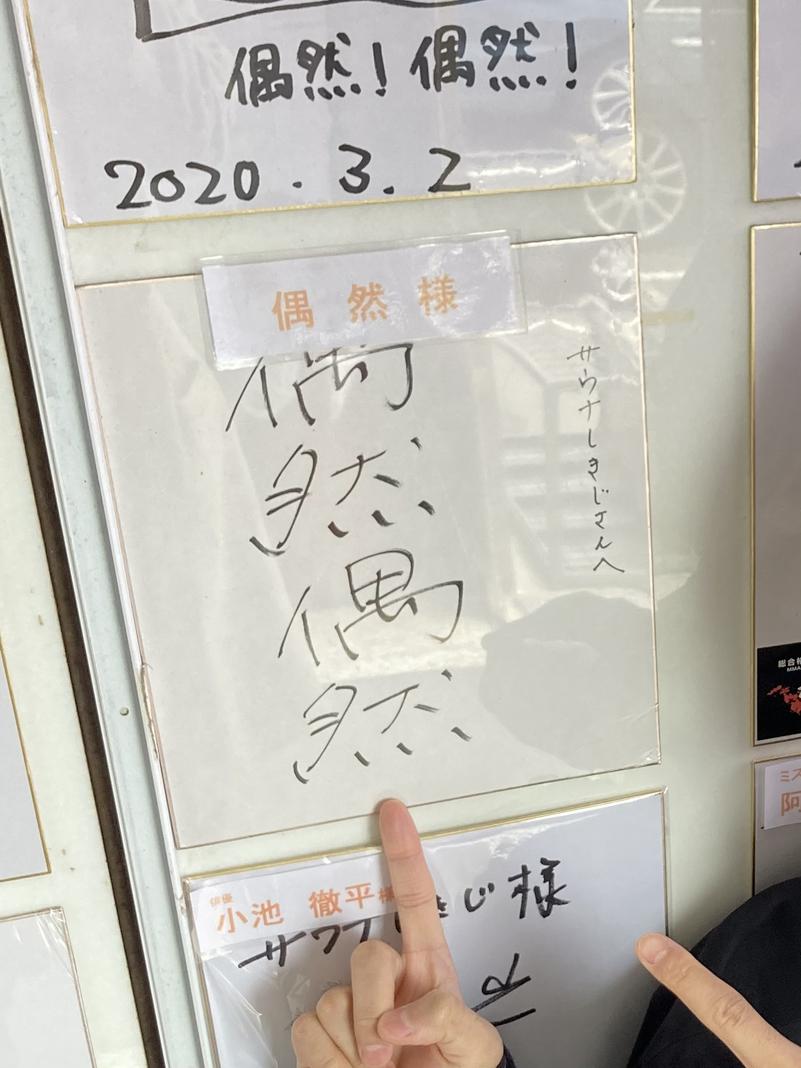 偶然!偶然!
2020.3.2
偶然様
偶然偶然
サウナしきじさんへ
俳優
小池 徹平様
サウナしきじ様
総合格
MMA
ミス
阿